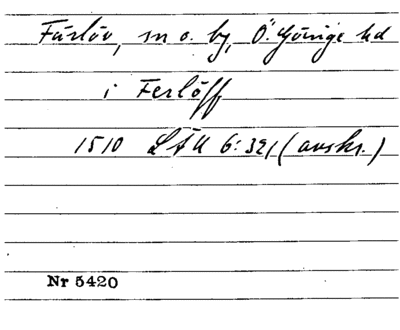 Färlöv, sn o. by, Ö. Göinge hd
i Ferlöff
1510 LÄU 6:321 (avskr.)
Nr 5420